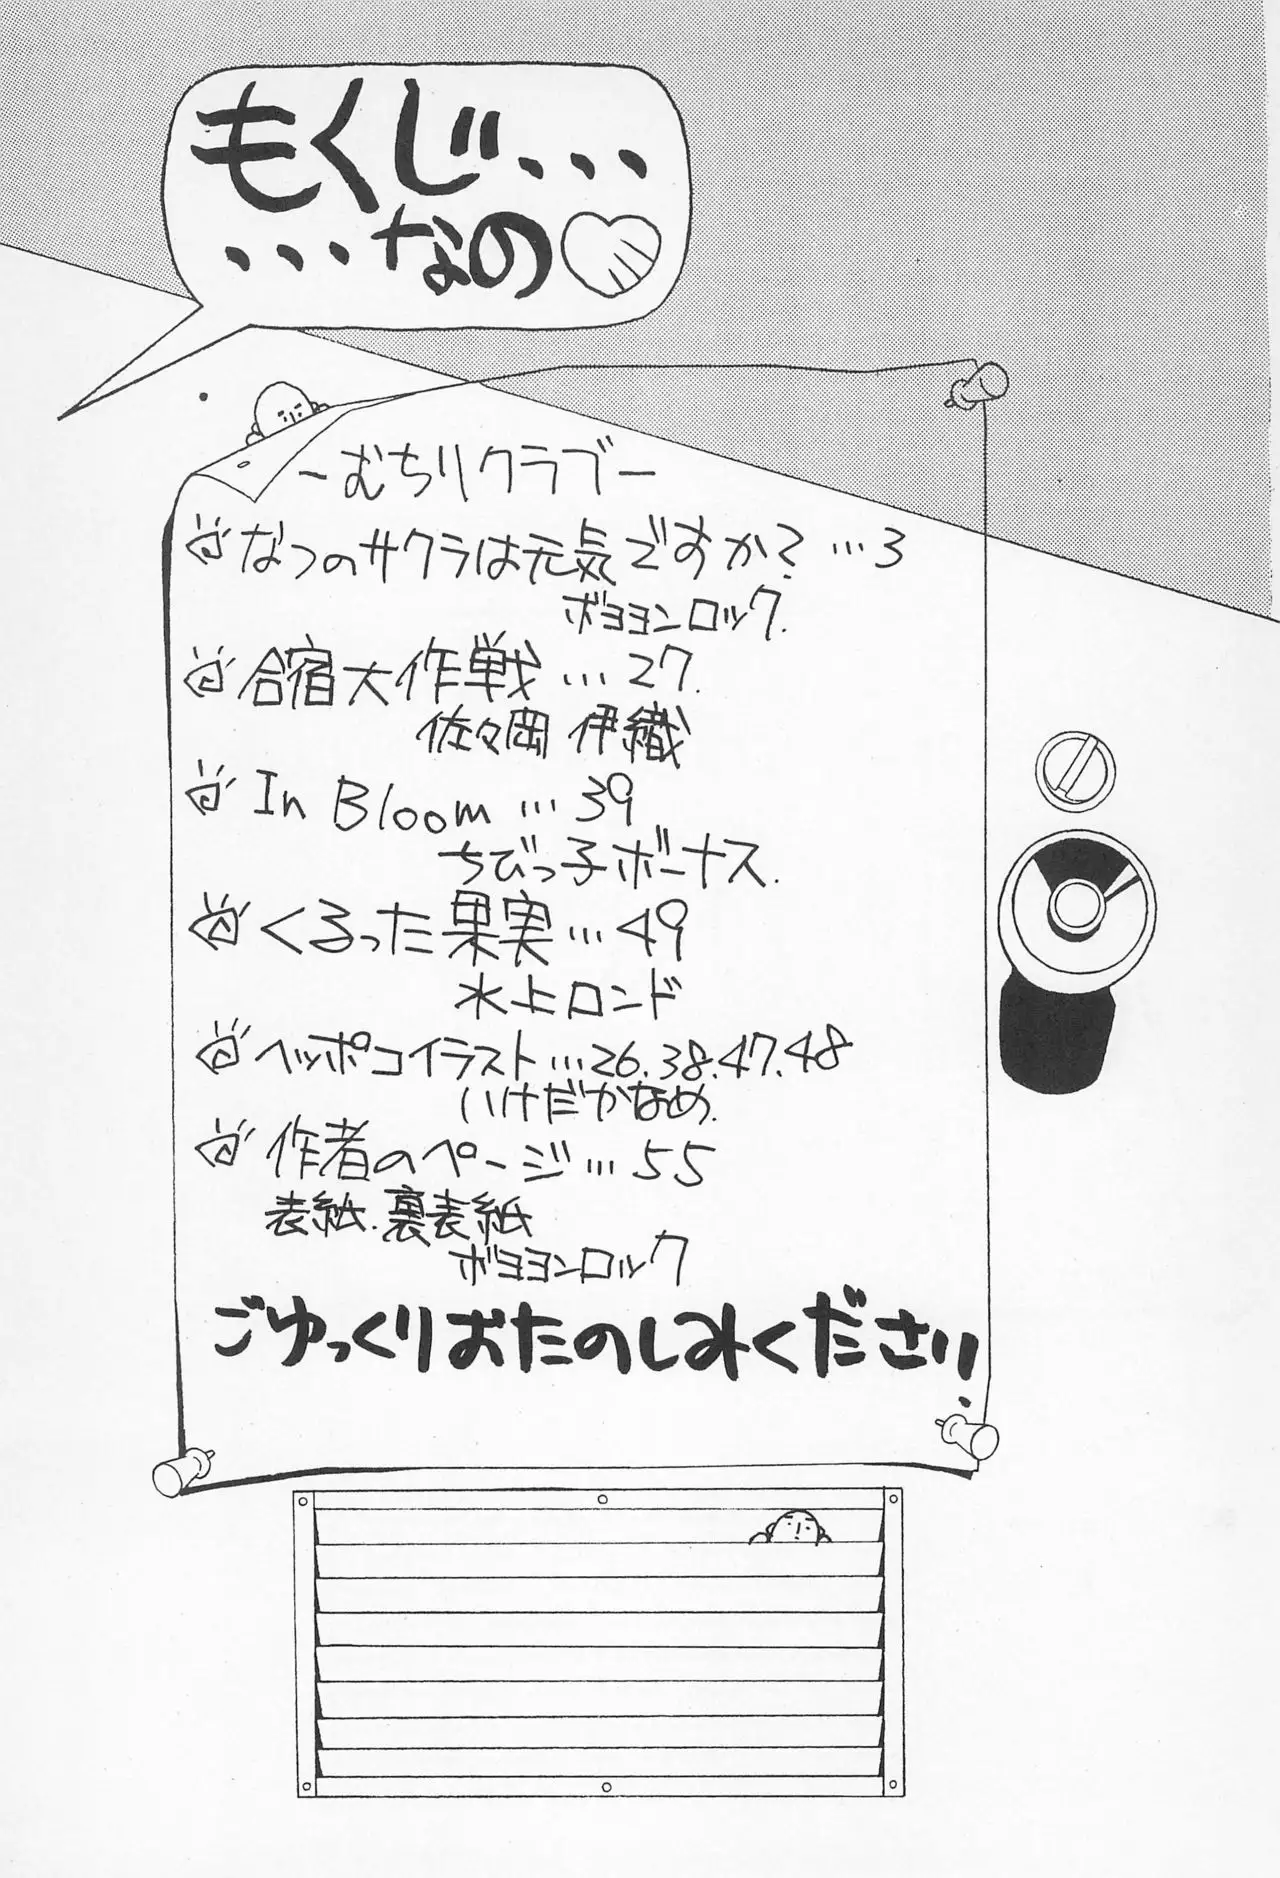 もくじ・・・
・・・なの♡
－むちりクラブ－
なつのサクラは元気ですか?…3
ボヨヨンロック.
合宿大作戦…27.
佐々岡 伊織
In Bloom…39
ちびっ子ボーナス.
くるった果実…49
水上ロンド
ヘッポコイラスト…26.38.47.48
いけだかなめ.
作者のページ…55
表紙.裏表紙
ボヨヨンロック
ごゆっくりおたのしみください!